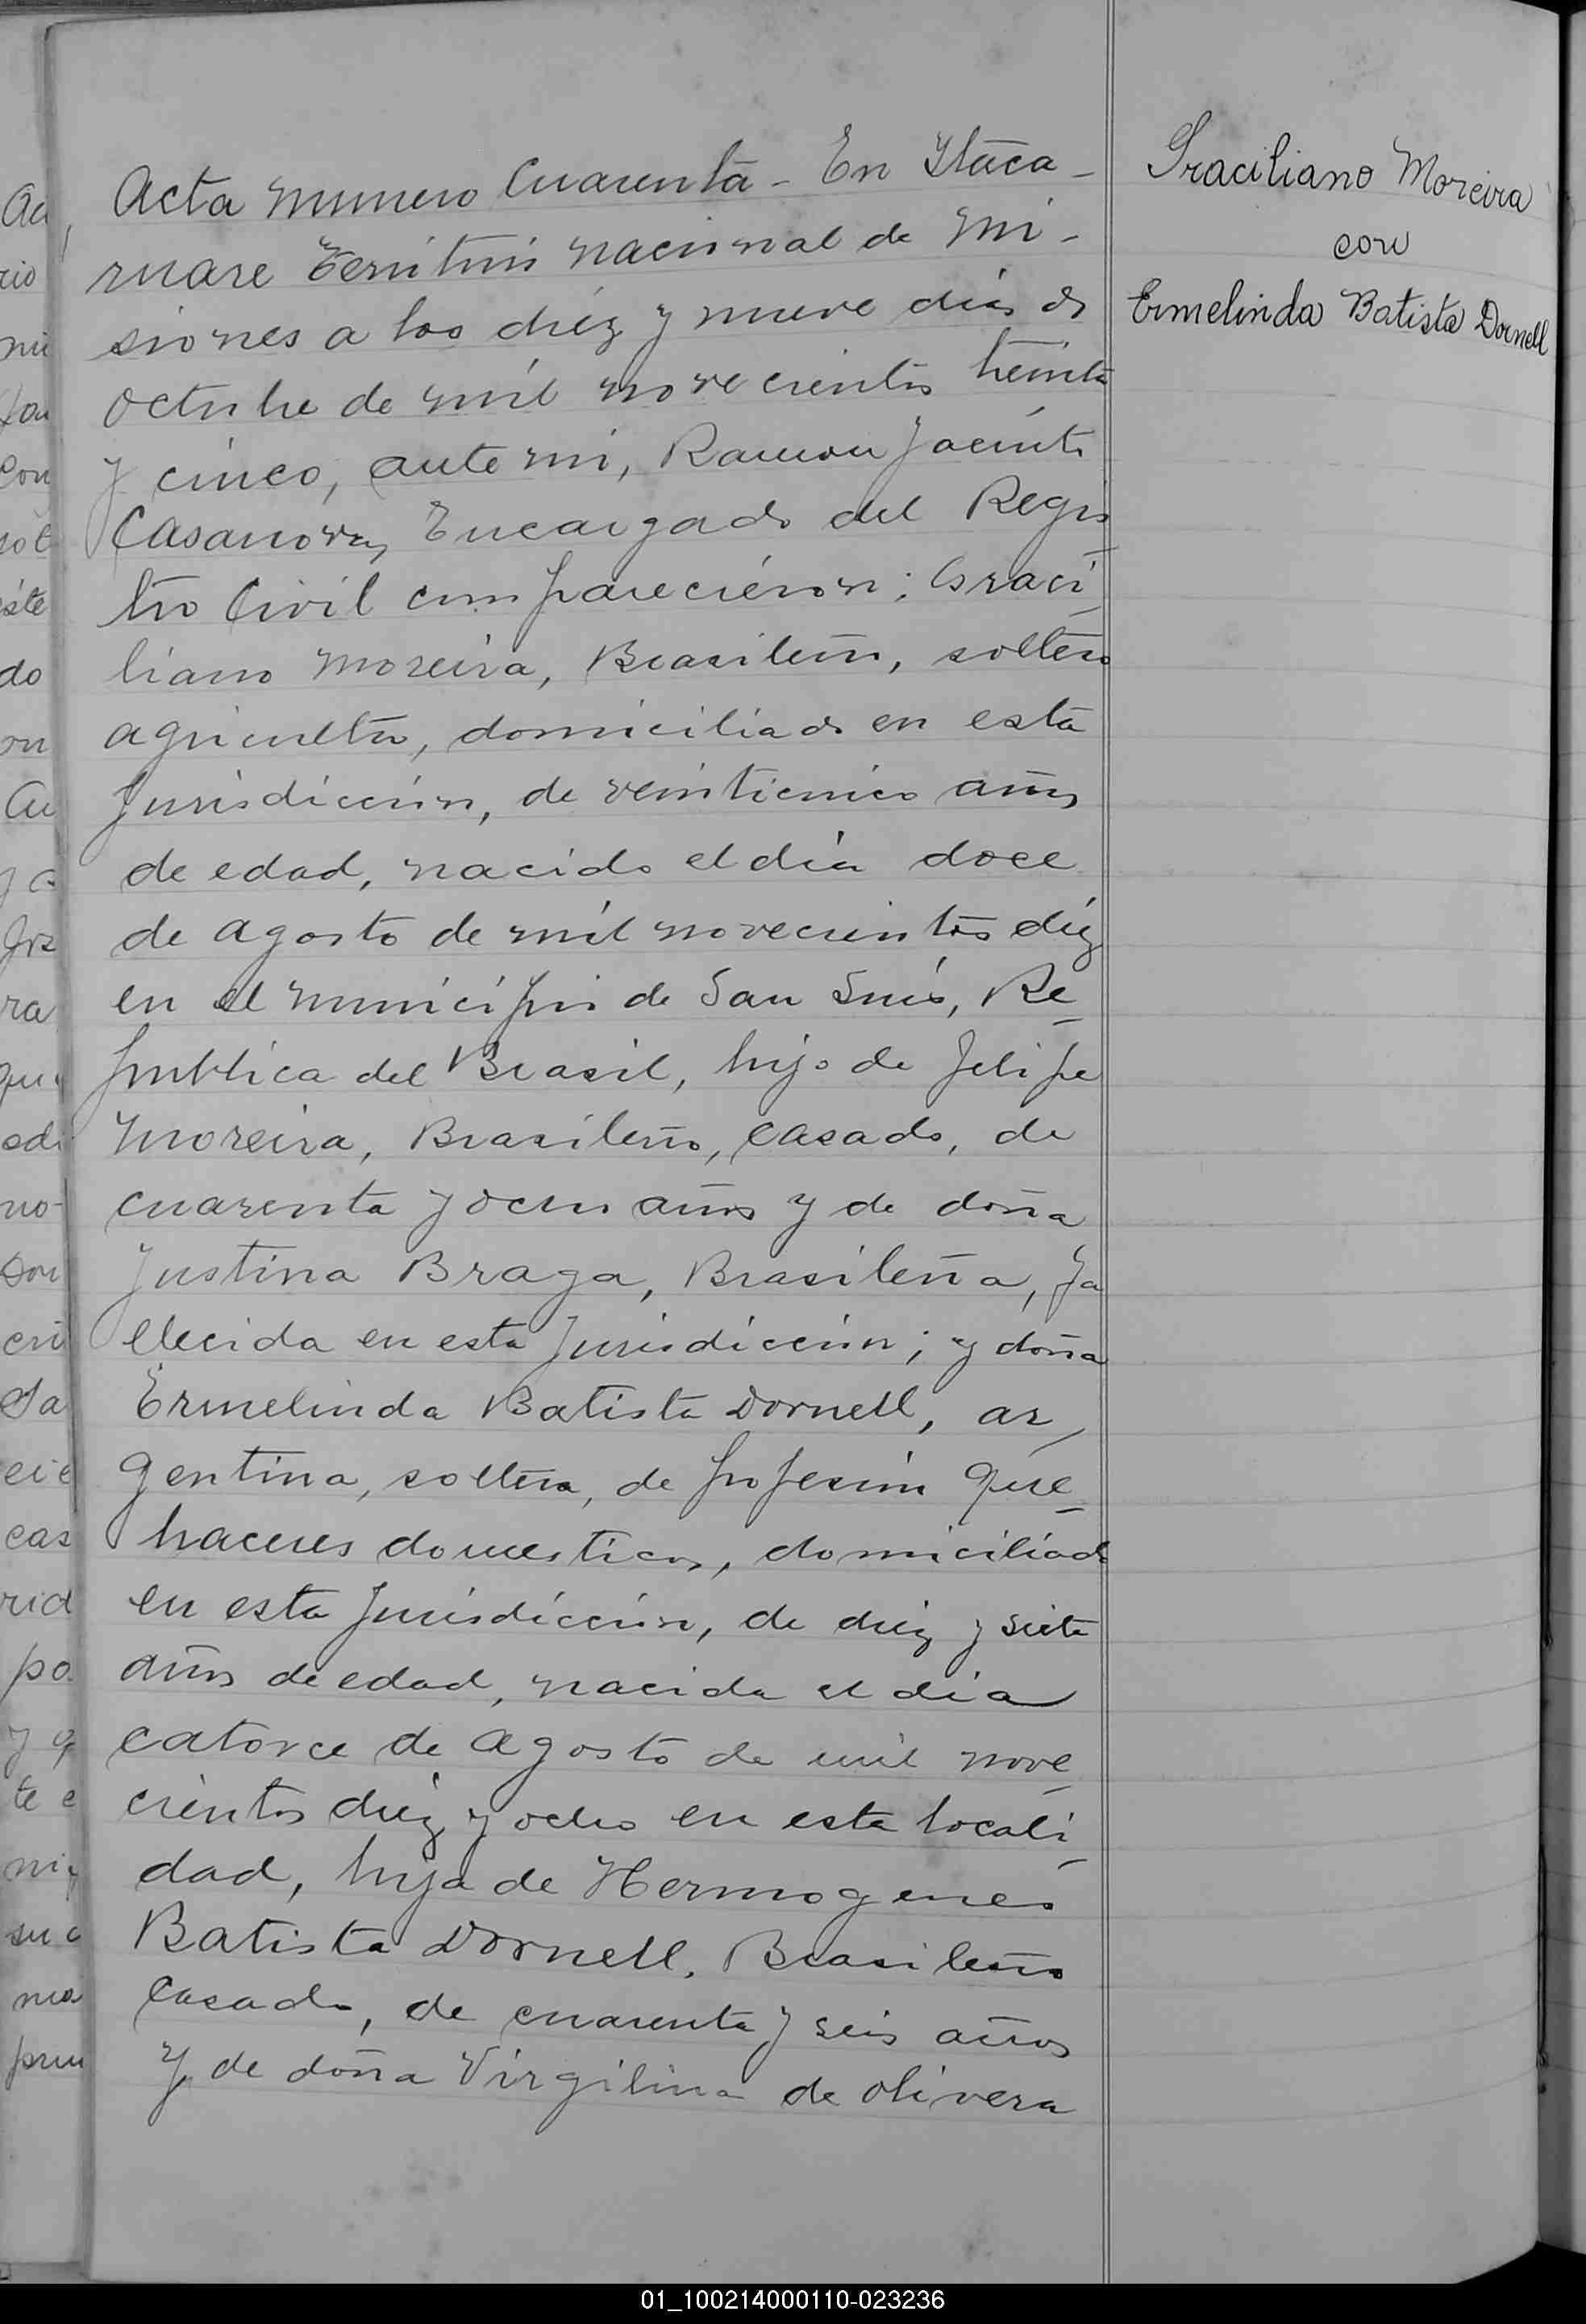 Acta numero Cuarenta - En Itaca-
ruare Territorio nacional de Mi-
siones a los diéz y nueve dias de
Octubre de mil novecientos treinta
y cinco, ante mi, Ramon Jacinto
Casanova, Encargado del Regis
tro Civil comparecieron; Graci
liano Moreira, Brasileño, soltero
agricultor, domiciliado en esta
Jurisdicción, de veinticinco años
de edad, nacido el día doce
de Agosto de mil novecientos diéz
en el municipio de San Luis, Re
publica del Brasil, hijo de Felipe
Moreira, Brasileño, casado, de
cuarenta y ocho años y de doña
Justina Braga, Brasileña, fa
llecida en esta Jurisdicción; y doña
Ermelinda Batista Dornell, ar
gentina, soltera, de profesión que
haceres domesticos, domiciliada
en esta Jurisdicción, de diéz y siete
años de edad, nacida el dia
catorce de Agosto de mil nove
cientos diéz y ocho en esta locali
dad, hija de Hermogenes
Batista Dornell, Brasileño
casado, de cuarenta y seis años
y de doña Virgilina de Olivera
Graciliano Moreira
con
Ermelinda Batista Dornell
01_100214000110-023236